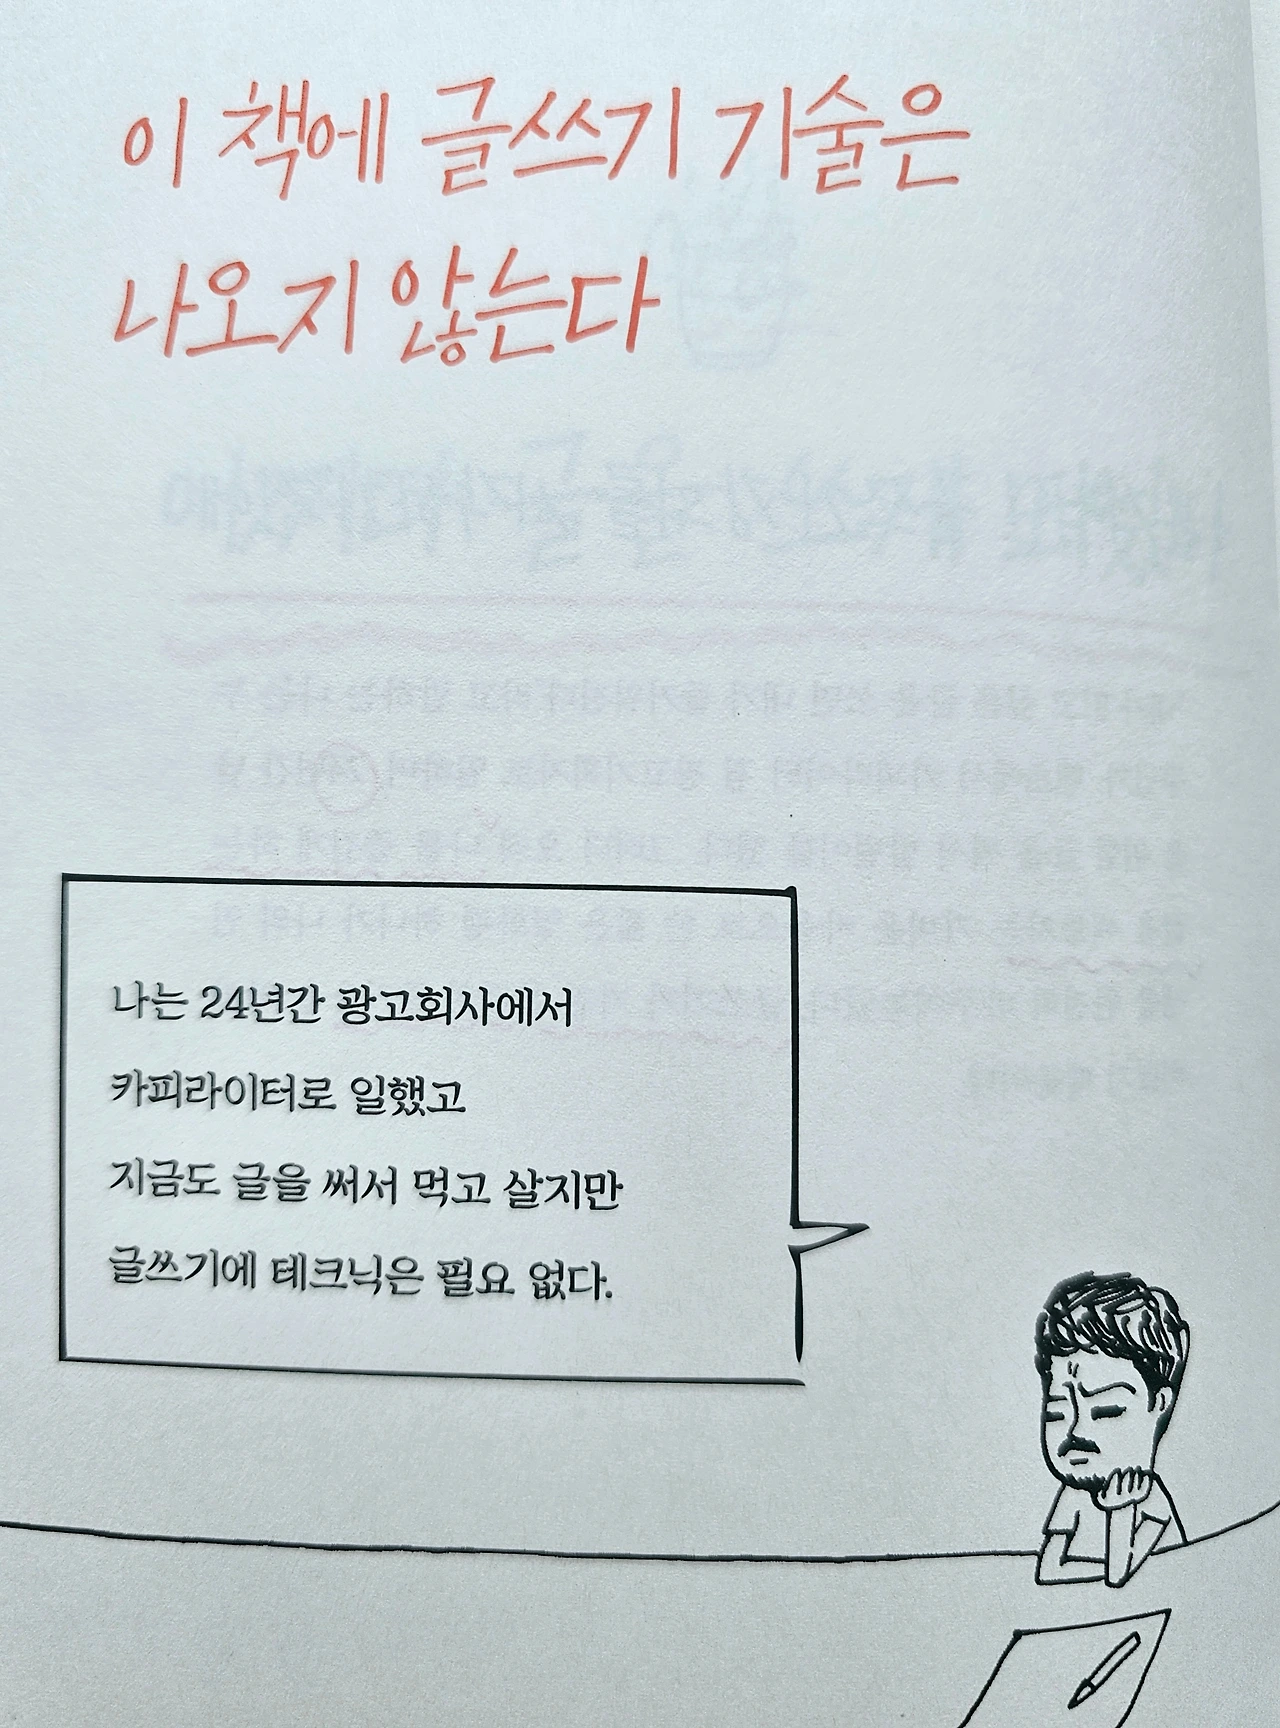 이 책에 글쓰기 기술은
나오지 않는다
나는 24년간 광고회사에서
카피라이터로 일했고
지금도 글을 써서 먹고 살지만
글쓰기에 테크닉은 필요 없다.